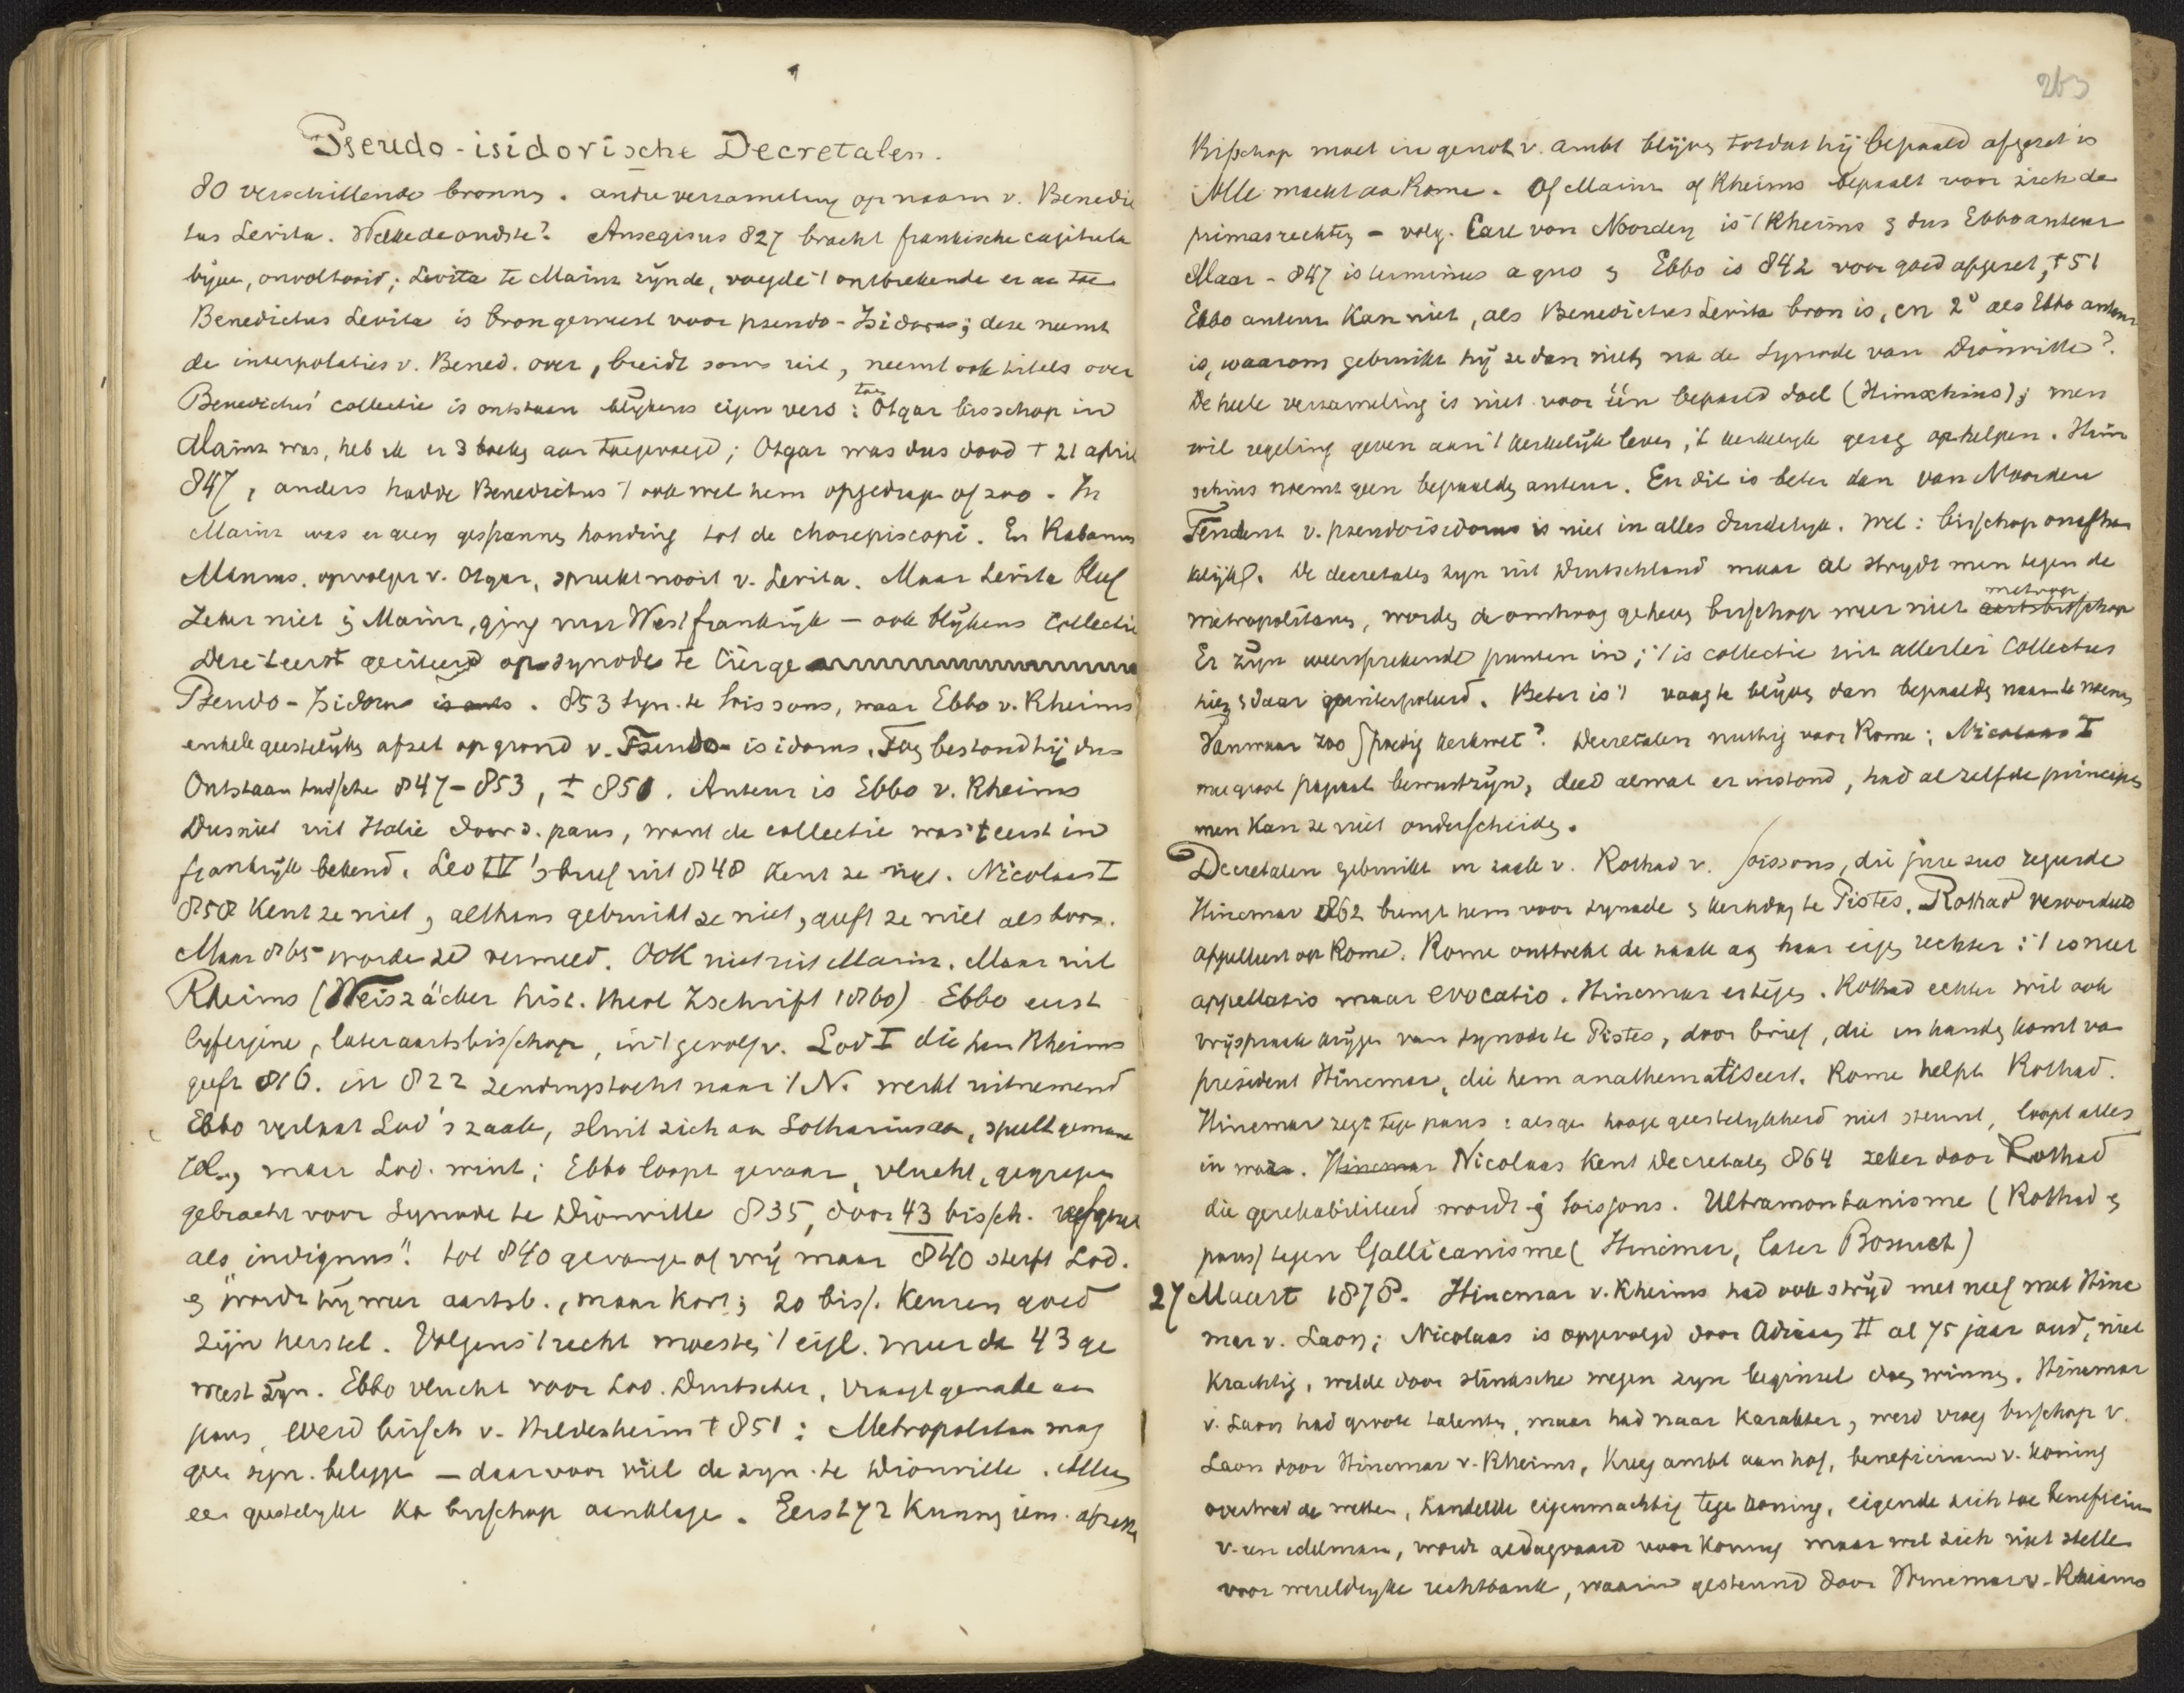 Pseudo-isidorische Decretalen.
80 verschillende bronnen. andre verzameling op naam v. Benedic
tus Levita. Welke de oudste? Ansegisus 827 bracht frankische capitula
bijeen, onvoltooid; Levita te Mainz zijnde, voegde 't ontbrekende er aan toe
Benedictus Levita is bron geweest voor pseudo-Isidorus; deze neemt
de interpolaties v. Bened. over, breidt soms uit, neemt ook titels over
Benedictus' collectie is ontstaan blijkens eigen vers: toen Otgar bisschop in
Mainz was, heb ik er 3 boeken aan toegevoegd; Otgar was dus dood † 21 april
847, anders hadde Benedictus 't ook wel hem opgedragen of zoo. In
Mainz was er geen gespannen houding tot de chorepiscopi. En Rabanus
Maurus, opvolger v. Otgar, spreekt nooit v. Levita. Maar Levita bleef
zeker niet in Mainz, ging naar Westfrankrijk — ook blijkens Collectie
Deze 't eerst geciteerd op synode te Cierge
Pseudo-Isidorus is ouds. 853 syn. te Soissons, waar Ebbo v. Rheims
enkele geestelijken afzet op grond v. Pseudo-isidorus. Toen bestond hij dus
Ontstaan tussche 847-853, ± 850. Auteur is Ebbo v. Rheims
Dus niet uit Italie door d. paus, want de collectie was 't eerst in
frankrijk bekend. Leo IV's brief uit 848 kent ze niet. Nicolaas I
858 kent ze niet, althans gebruikt ze niet, geeft ze niet als bron.
Maar 865 worden ze vermeld. Ook niet uit Mainz. Maar uit
Rheims (Weiszäcker hist. theol Zschrift 1860) Ebbo eerst
lijfeigene, later aartsbisschop, in 't gevolg v. Lod I die hem Rheims
geeft 816. in 822 zendingstocht naar 't N. werkt uitnemend
Ebbo verlaat Lod's zaak, sluit zich aan Lotharius aan, speelt gemeene
rol, maar Lod. wint; Ebbo loopt gevaar, vlucht, gegrepen
gebracht voor Synode te Dionville 835, door 43 bissch. afgezet
als „indignus". tot 840 gevangen of vrij maar 840 sterft Lod.
en wordt hij weer aartsb., maar kort; 20 biss. keuren goed
zijn herstel. Volgens 't recht moesten 't eigl. meer dan 43 ge
weest zijn. Ebbo vlucht voor Lod. Duitscher, vraagt genade aan
paus, werd bissch v. Hildesheim † 851: Metropolitaan mag
geen syn. beleggen — daarvoor viel de syn. te Dionville. Alleen
een geestelijke kan bisschop aanklagen. Eerst 72 kunnen iem. afzetten
263
Bisschop moet in genot v. ambt blijven totdat hij bepaald afgezet is
Alle macht aan Rome. Of Mainz of Rheims bepaalt voor zich de
primasrechten — volg. Carl von Noorden is 't Rheims en dus Ebbo auteur
Maar - 847 is terminus a quo en Ebbo is 842 voor goed afgezet, † 51
Ebbo auteur kan niet, als Benedictus Levita bron is, en 2° als Ebbo auteur
is, waarom gebruikt hij ze dan niet na de Synode van Dionville?
De heele verzameling is niet voor één bepaald doel (Hinschius); men
wil regeling geven aan 't kerkelijk leven, 't kerkelijk gezag ophelpen. Hin
schius noemt geen bepaalden auteur. En dit is beter dan van Noorden
Tendenz v. pseudoisidorus is niet in alles duidelijk. Wel: bisschop onafhan
kelijk. De decretalen zijn uit Duitschland maar al strijdt men tegen de
metropolitanen, worden de omhoog geheven bisschop weer niet metropo aartsbisschop
Er zijn weersprekende punten in; 't is collectie uit allerlei Collecties
hier en daar geinterpoleerd. Beter is 't vaag te blijven dan bepaalden naam te noemen
Vanwaar zoo spoedig kerkwet? Decretalen nuttig voor Rome; Nicolaas I
met groot papaal bewustzijn, deed alwat er instond, had al zelfde principes
men kan ze niet onderscheiden.
Decretalen gebruikt in zaak v. Rothad v. Soissons, die jure suo regeerde
Hincmar 862 brengt hem voor synode en kerkdag te Pistes. Rothad veroordeeld
appelleert op Rome. Rome onttrekt de zaak aan haar eigen rechter: 't is niet
appellatio maar evocatio. Hincmar ertegen. Rothad echter wil ook
vrijspraak krijgen van synode te Pistes, door brief, die in handen komt van
president Hincmar, die hem anathematiseert. Rome helpt Rothad.
Hincmar zegt tegen paus: als ge hooge geestelijkheid niet steunt, loopt alles
in war. Hincmar Nicolaas kent Decretalen 864 zeker door Rothad
die gerehabiliteerd wordt in Soissons. Ultramontanisme (Rothad en
paus) tegen Gallicanisme (Hincmar, later Bossuet)
27 Maart 1878. Hincmar v. Rheims had ook strijd met neef met Hinc
mar v. Laon; Nicolaas is opgevolgd door Adriaan II al 75 jaar oud, niet
krachtig, wilde door slinksche wegen zijn beginsel doen winnen. Hincmar
v. Laon had groote talenten, maar had naar karakter, werd vroeg bisschop v.
Laon door Hincmar v. Rheims, kreeg ambt aan hof, beneficium v. koning
overtrad de wetten, handelde eigenmachtig tegen koning, eigende zich toe beneficium
v. een edelman, wordt gedagvaard voor koning maar wil zich niet stellen
voor wereldlijke rechtbank, waarin gesteund door Hincmar v. Rheims